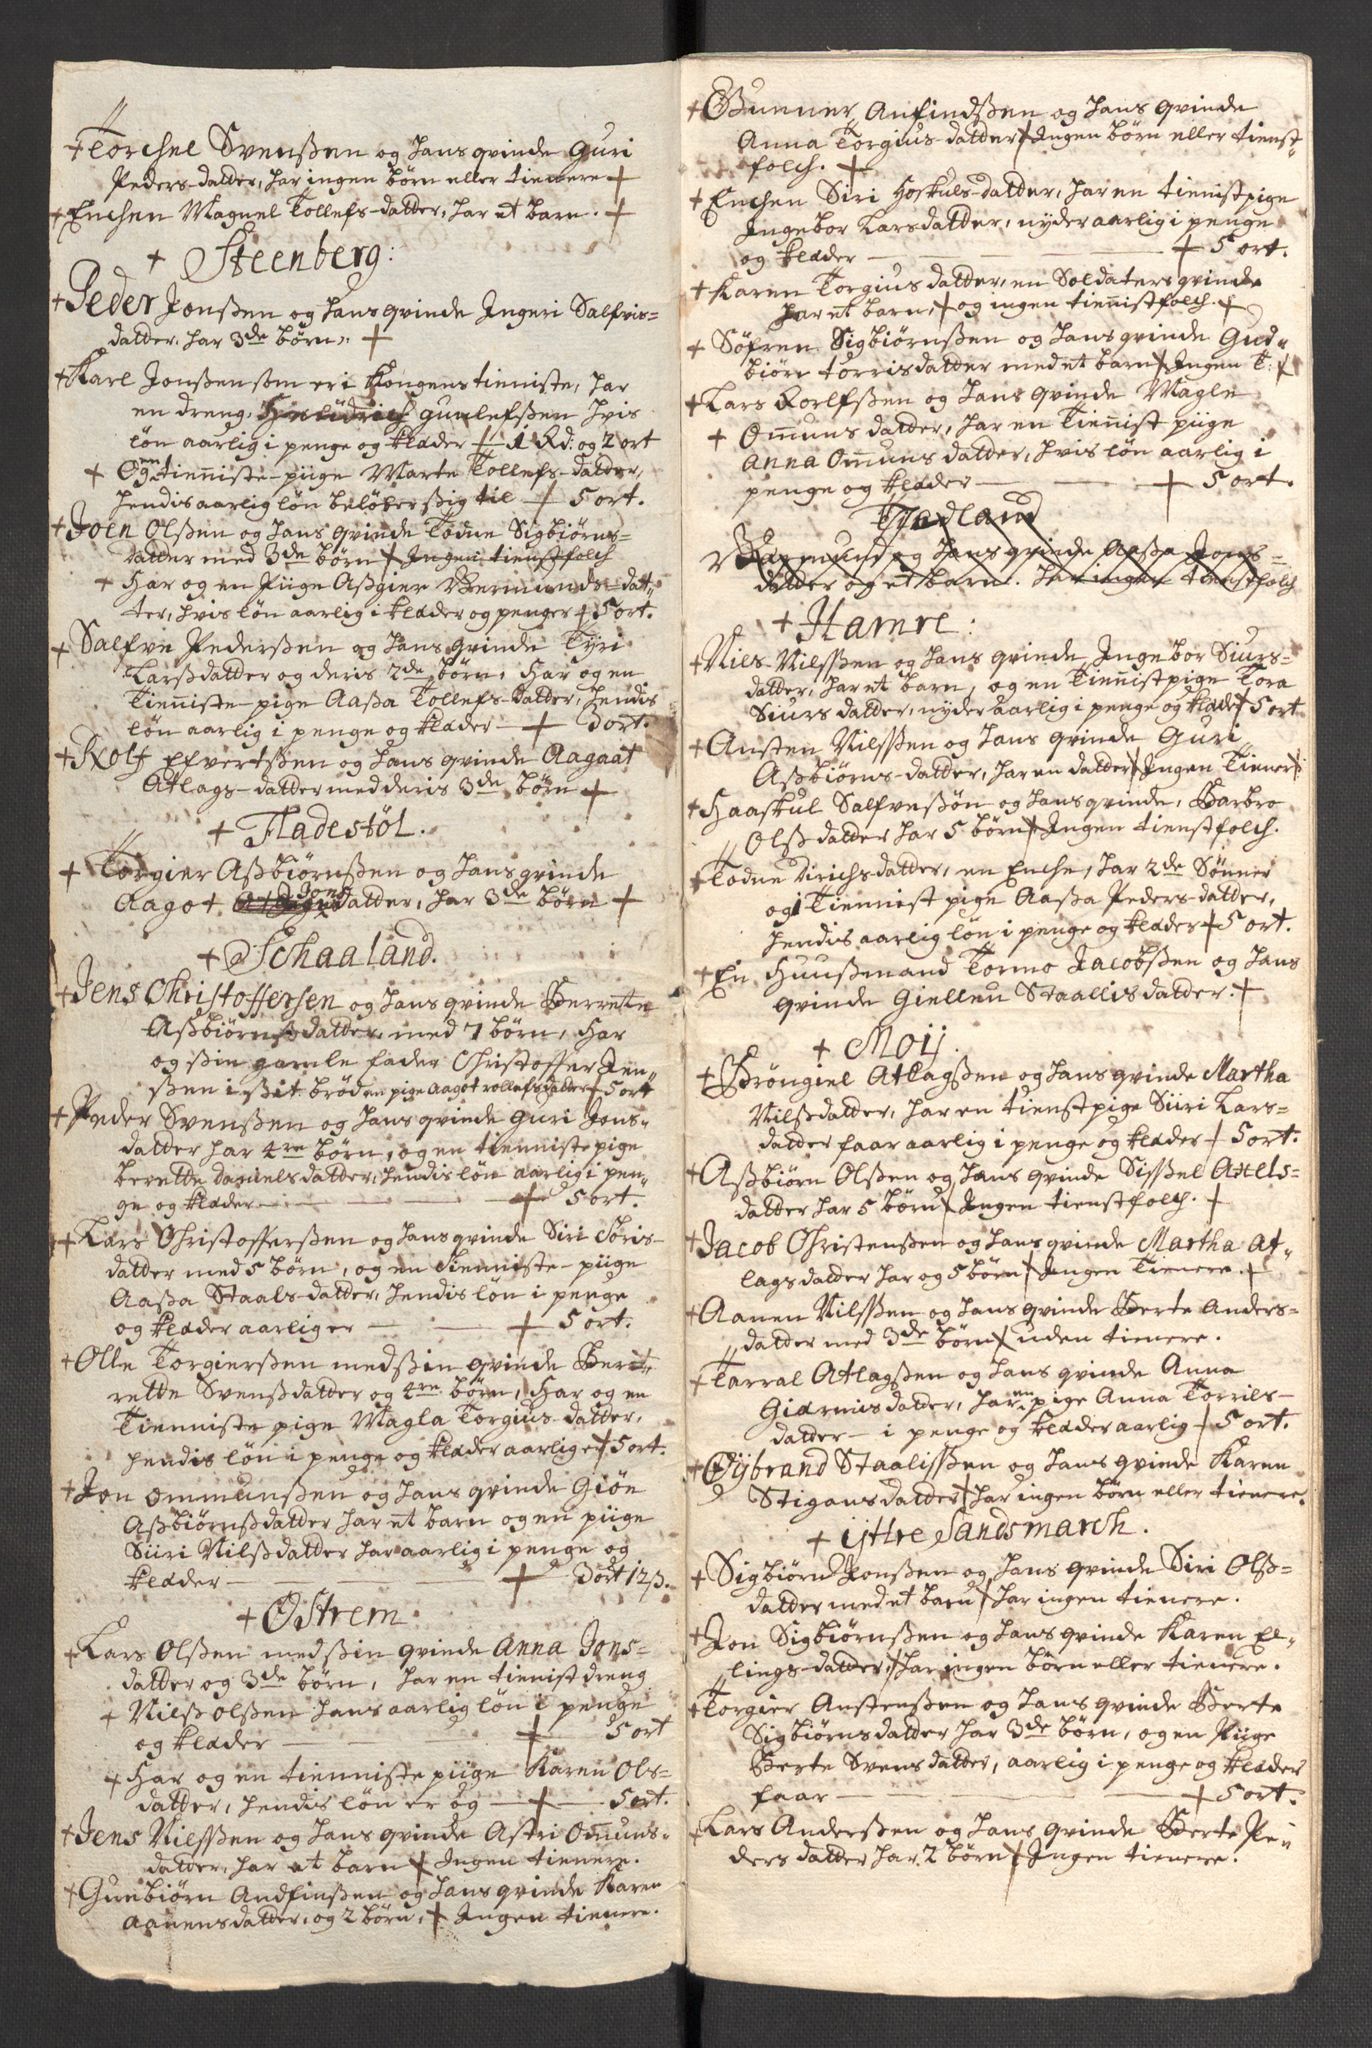 + Torchel Svenßen og hans qvinde Guri
Peders-datter, har ingen børn eller tienere +
+ Enchen Magnel Tollefs-datter, har et barn. +
+ Steenberg:
+ Peder Jonßen og hans qvinde Ingeri Salfvis=
datter, har 3de børn, +
+ Karl Jonßen som er i Kongens tieniste, har
en dreng, Gunlefßen hvis
løn aarlig i penge og klæder + 1 Rd: og 2 ort
+ Og en tienniste-piige Marte Tollefs-datter,
hendis aarlig løn beløber ßig til + 5 ort.
+ Joen Olßen og hans qvinde Todne Sigbiørns=
datter med 3de børn + Ingen tienstfolch
+ Har og en Piige Aßgier Germunds-dat=
ter, hvis løn aarlig i klæder og penger + 5 ort.
+ Salfve Pederßen og hans qvinde Tyri
Larßdatter og deris 2de børn, Har og en
Tienniste-pige Aaßa Tollefs-datter, hendis
løn aarlig i penge og klæder — + 3ort.
+ Rolf Efvertßen og hans qvinde Aagaat
Atlags-datter med deris 3de børn +
+ Fladestøl.
+ Torgier Aßbiørnßen og hans qvinde
Aagot Jons datter, har 3de børn +
+ Schaaland.
+ Jens Christoffersen og hans qvinde Berrette
Aßbiørnßdatter, med 7 børn, Har
og ßin gamle fader Christoffer Jen=
ßen i ßit brød en pige Aagot rollefsdatter + 5 ort
+ Peder Svenßen og hans qvinde Guri Jons=
datter har 4re børn, og en tienniste pige
berette Danielsdatter, hendis løn aarlig i pen=
ge og klæder — + 5 ort.
+ Lars Christofferßen og hans qvinde Siri Toris-
datter med 5 børn, og en tienniste-piige
Aaßa Staals-datter, hendis løn i penge
og klæder aarlig er — + 5 ort.
+ Olle Torgierßen med ßin qvinde Berit=
rette Svenßdatter og 4re børn, Har og en
Tienniste pige Magla Torgius-datter,
hendis løn i penge og klæder aarlig er + 5 ort.
+ Jon Ommunßen og hans qvinde Giøe
Aßbiørnßdatter har et barn og en piige
Siiri Nilßdatter har aarlig i penge og
klæder — + 3ort 12 ß.
+ Østrem
+ Lars Olßen med ßin qvinde Anna Jons=
datter og 3de børn, har en tienist dreng
+ Nilß Olßen hans aarlig løn i penge
og klæder — + 5 ort
+ Har og en tienniste piige Karen Ols=
datter, hendis løn er og — + — 5 ort.
+ Jens Nilßen og hans qvinde Astri Omuns=
datter, har et barn + Ingen tienere.
+ Gunbiørn Andfinßen og hans qvinde Karen
Aanensdatter, og 2 børn, + Ingen tienere.
+ Gunner Anfindßen og hans qvinde
Anna Torgius-datter + Ingen børn eller tienst=
folch. +
+ Enchen Siri Hoskuls-datter, har en tienistpige
Ingebor Larsdatter, nyder aarlig i penge
og klæder — + 5 ort.
+ Karen Torgius datter, en Soldaters qvinde
har et barn, + og ingen tiennistfolch. +
+ Søfren Sigbiørnßen og hans qvinde Gud=
biør torrisdatter med et barn + Ingen T: +
+ Lars Rolfßen og hans qvinde Magle
+ Omunsdatter, har en Tiennist piige
Anna Omuns datter, hvis løn aarlig i
penge og klæder — + 5 ort.
Tiedland
og hans qvinde Aaßa Jons=
datter og et barn. har ingen tienstfolch
+ Hamre:
+ Niels Nilßen og hans qvinde Ingebor Siurs=
datter, har et barn, og en Tiennistpige Tora
Siurs datter, nyder aarlig i penge og klæder + 5 ort
+ Ansten Nilßen og hans qvinde Guri
Aßbiørns-datter, har en datter + Ingen Tiener +
+ Haaskul Salfveßøn og hans qvinde, Barbro
Olß datter har 5 børn + Ingen tienstfolch.
+ Todne Dirichsdatter, en Enche, har 2de Sønner
og 1 Tiennist pige Aaßa Peders-datter,
hendis aarlig løn i penge og klæder + 5 ort.
+ En Huußmand Tormo Jacobßen og hans
qvinde Giellen Staallisdatter. +
+ Moij.
+ Brøngiel Atlagßen og hans qvinde Martha
Nilßdatter, har en tienstpige Siiri Lars=
datter faar aarlig i penge og klæder + 5 ort.
+ Aßbiørn Olßen og hans qvinde Sißel Axels=
datter har 5 børn + Ingen tienstfolch. +
+ Jacob Christenßen og hans qvinde Martha At=
lagsdatter har og 5 børn + Ingen Tienere. +
+ Aanen Nilßen og hans qvinde Berte Anders=
datter med 3de børn + uden tienere.
+ Tarral Atlagßen og hans qvinde Anna
Giermisdatter, har en pige Anna Torrils-
datter — i penge og klæder aarlig + 5 ort.
+ Gijbrand Staalißen og hans qvinde Karen
Stigansdatter + har ingen børn eller tienere.
+ ijttre Sandsmarch.
+ Sigbiørn Jonßen og hans qvinde Siri Olß=
datter med et barn + har ingen tienere.
+ Jon Sigbiørnßen og hans qvinde Karen El=
lings-datter, + har ingen børn eller tienere.
+ Torgier Anstenßen og hans qvinde Berte
Sigbiørnsdatter har 3de børn, og en Piige
Berte Svensdatter, aarlig i penge og klæder
faar — + 5 ort.
+ Lars Anderßen og hans qvinde Berte Pe=
dersdatter har 2 børn + Ingen tienere.